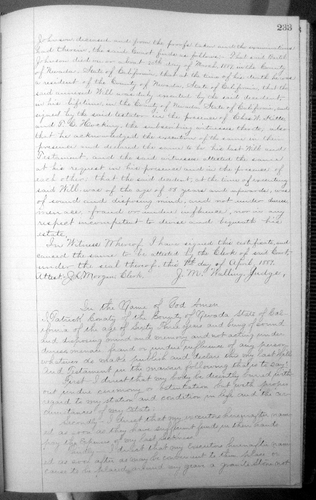 233
Johnson deceased and from the proofs taken and the examination
had therein, the said Court finds as follows: That said
Johnson died on or about day of March 1882, in the County
of Nevada, State of California, that at the time of his death he was a
resident of the County of Nevada, State of California, that the
said annexed Will was duly executed by the said decedent
in his lifetime in the County of Nevada State of California and
signed by the said testator in the presence of Chas. W.
and the subscribing witnesses thereto, also
that he acknowledged the execution of the same in their
presence and declared the same to be his last Will and
Testament, and the said witnesses attested the same
at his request in his presence and in the presence of
each other, that the said decedent at the time of executing
said Will, was of the age of years and upwards, was
of sound and disposing mind, and not under duress
menace fraud or undue influence, nor in any
respect incompetent to devise and bequeath his
estate.
In Witness Whereof, I have signed this certificate, and
caused the same to be attested by the Clerk of said Court
under the seal thereof, this day of April 1882.
Attest: Morgan Clerk. J. M. Walling, Judge,
In the Name of God Amen
I Patrick of the County of Nevada State of Cal-
ifornia of the age of Sixty Three years and being of sound
and disposing mind and memory and not acting under
duress menace fraud or undue influence of any person
whatever do make publish and declare this my last Will
and Testament in the manner following that is to say
First. I direct that my body be decently buried with-
out undue ceremony or ostentation but with proper
regard to my station and condition in life and the cir-
cumstances of my estate.
Secondly. I direct that my executors hereinafter nam-
ed as soon as they have sufficient funds in their hands
pay the expenses of my last sickness
I direct that my executors hereinafter nam-
ed as soon after as may be convenient to them place or
cause to be placed around my grave a granite stone